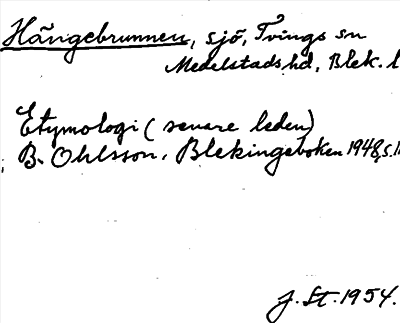 Hängebrunnen, sjö, Tvings sn
Medelstads hd, Blek. l
Etymologi (senare leden)
B. Ohlsson, Blekingeboken 1948, s. 1
J. St. 1954.